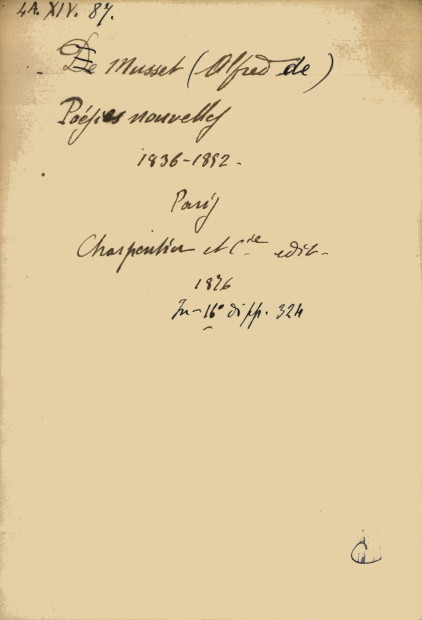 4A. XIV. 87.
De Musset (Alfred de)
Poésies nouvelles
1836-1852.
Paris
Charpentier et C.ie edit.
1876
In-16° di pp. 324